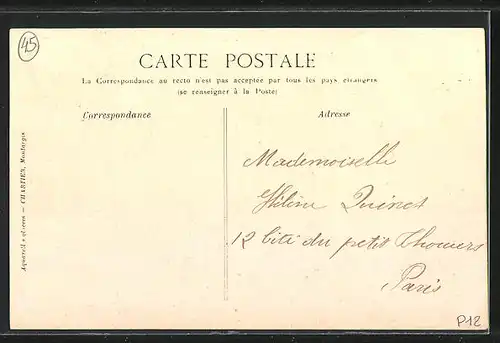 45
CARTE POSTALE
La Correspondance au recto n'est pas acceptée par tous les pays étrangers
(se renseigner à la Poste)
Correspondance
Adresse
Mademoiselle
Hélène Quinet
12 Cité du petit Thouars
Paris
CHARTIER, Montargis
P12